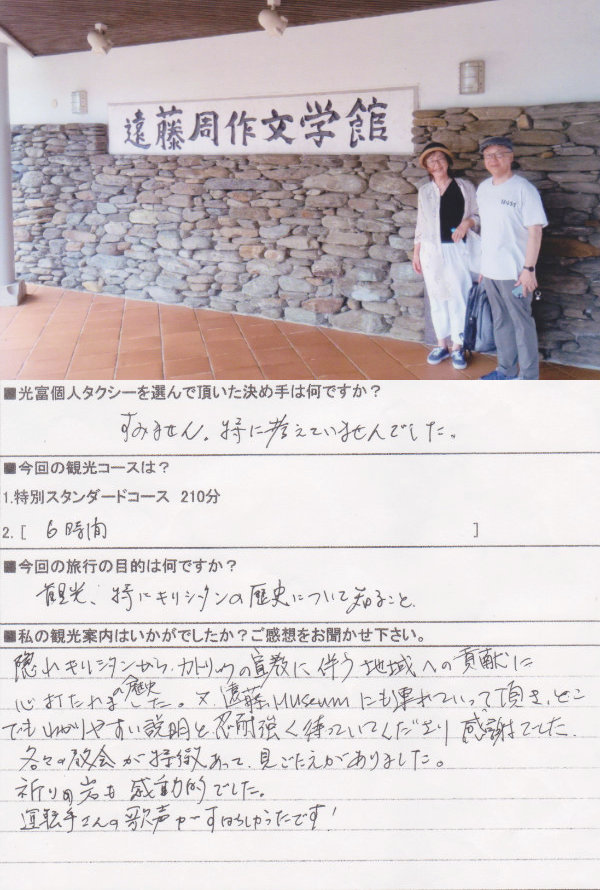 遠藤周作文学館
■光富個人タクシーを選んで頂いた決め手は何ですか？
すみません。特に考えていませんでした。
■今回の観光コースは？
1.特別スタンダードコース 210分
2.［ 6時間 ］
■今回の旅行の目的は何ですか？
観光、特にキリシタンの歴史について知ること。
■私の観光案内はいかがでしたか？ご感想をお聞かせ下さい。
隠れキリシタンから、カトリックの宣教に伴う地域への貢献に
の歴史
心打たれました。又、遠藤Museumにも連れていって頂き、どこ
でもわかりやすい説明と、忍耐強く待っていてくださり感謝でした。
各々の教会が特徴あって、見ごたえがありました。
祈りの岩も感動的でした。
運転手さんの歌声がすばらしかったです！